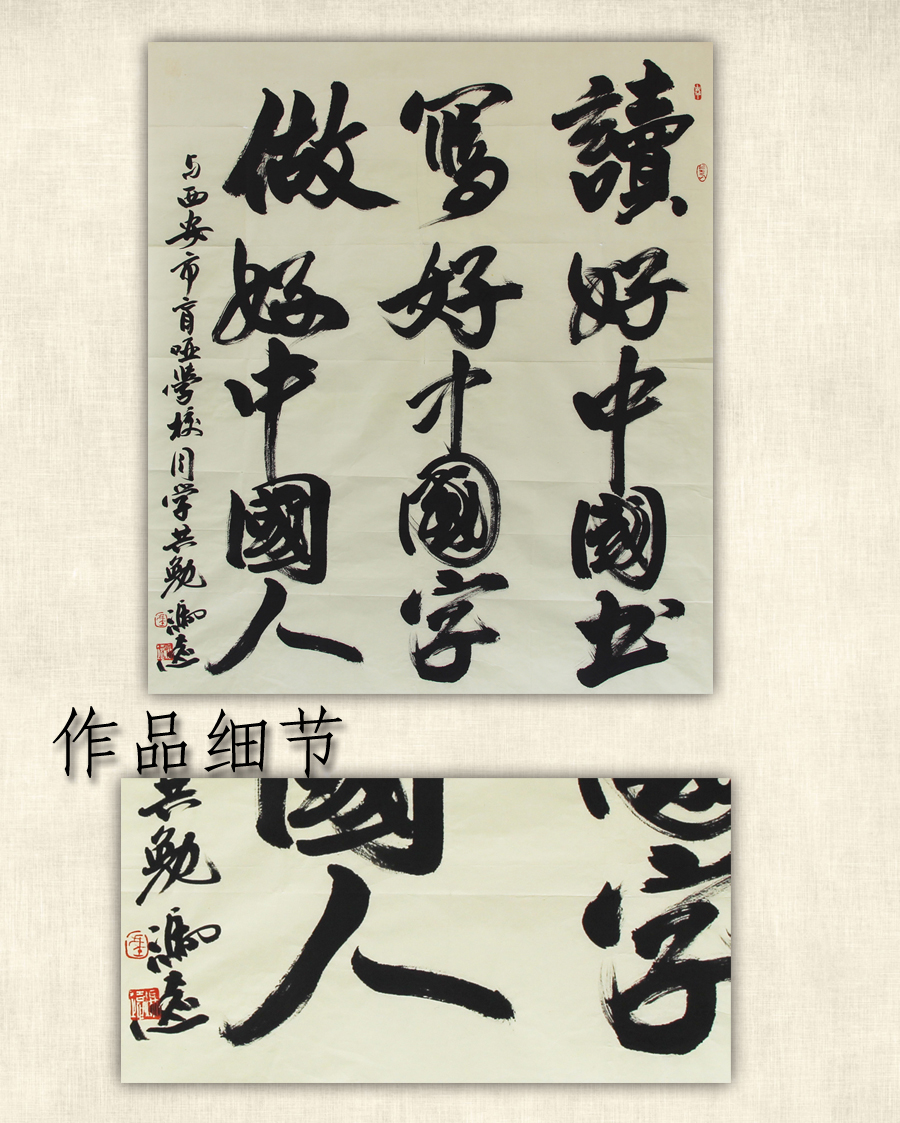 讀好中國书
寫好中國字
做好中國人
与西安市盲哑學校同学共勉
馮远
作品细节
國人
字
共勉
馮远